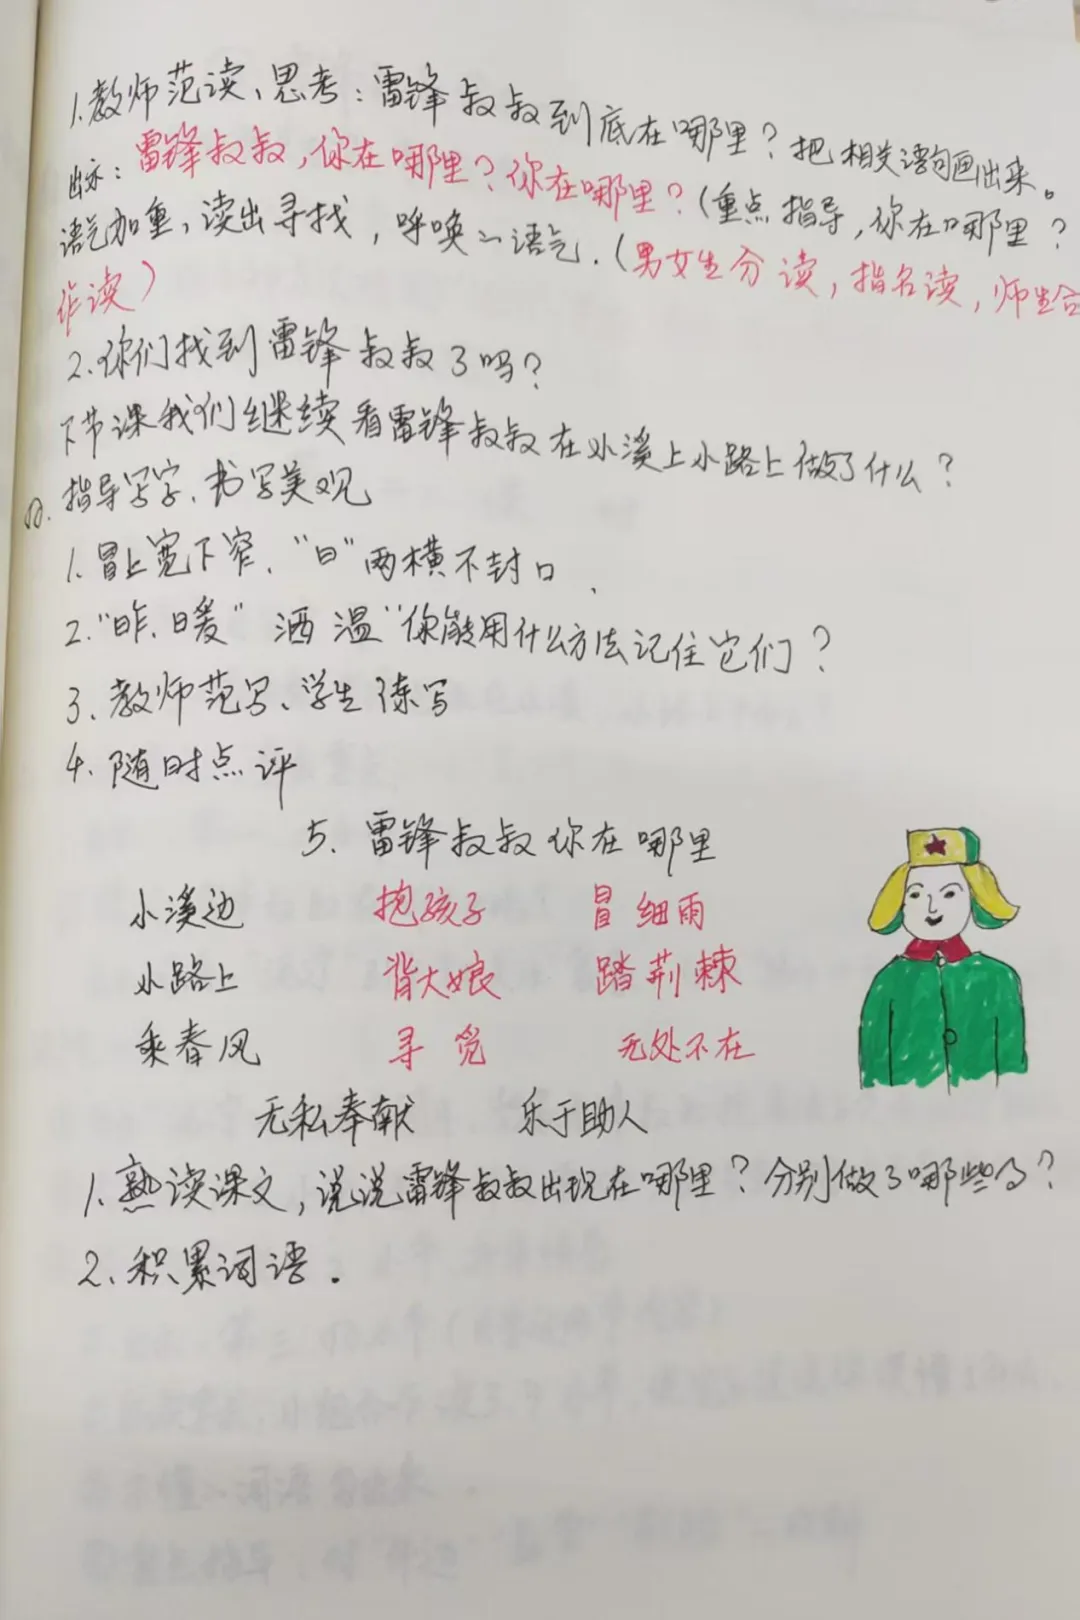 1.教师范读、思考：雷锋叔叔到底在哪里？把相关语句画出来。
出示：雷锋叔叔，你在哪里？你在哪里？（重点指导，你在哪里？
语气加重，读出寻找，呼唤的语气.（男女生分读，指名读，师生合
作读）
2.你们找到雷锋叔叔了吗？
下节课我们继续看雷锋叔叔在小溪上小路上做了什么？
四.指导写字、书写美观
1.冒上宽下窄，“日”两横不封口、
2.“昨、暖”洒 温“你能用什么方法记住它们？
3、教师范写、学生练写
4、随时点评
5、雷锋叔叔你在哪里
小溪边 抱孩子 冒细雨
小路上 背大娘 踏荆棘
乘春风 寻觅 无处不在
无私奉献 乐于助人
1.熟读课文，说说雷锋叔叔出现在哪里？分别做了哪些事？
2、积累词语．